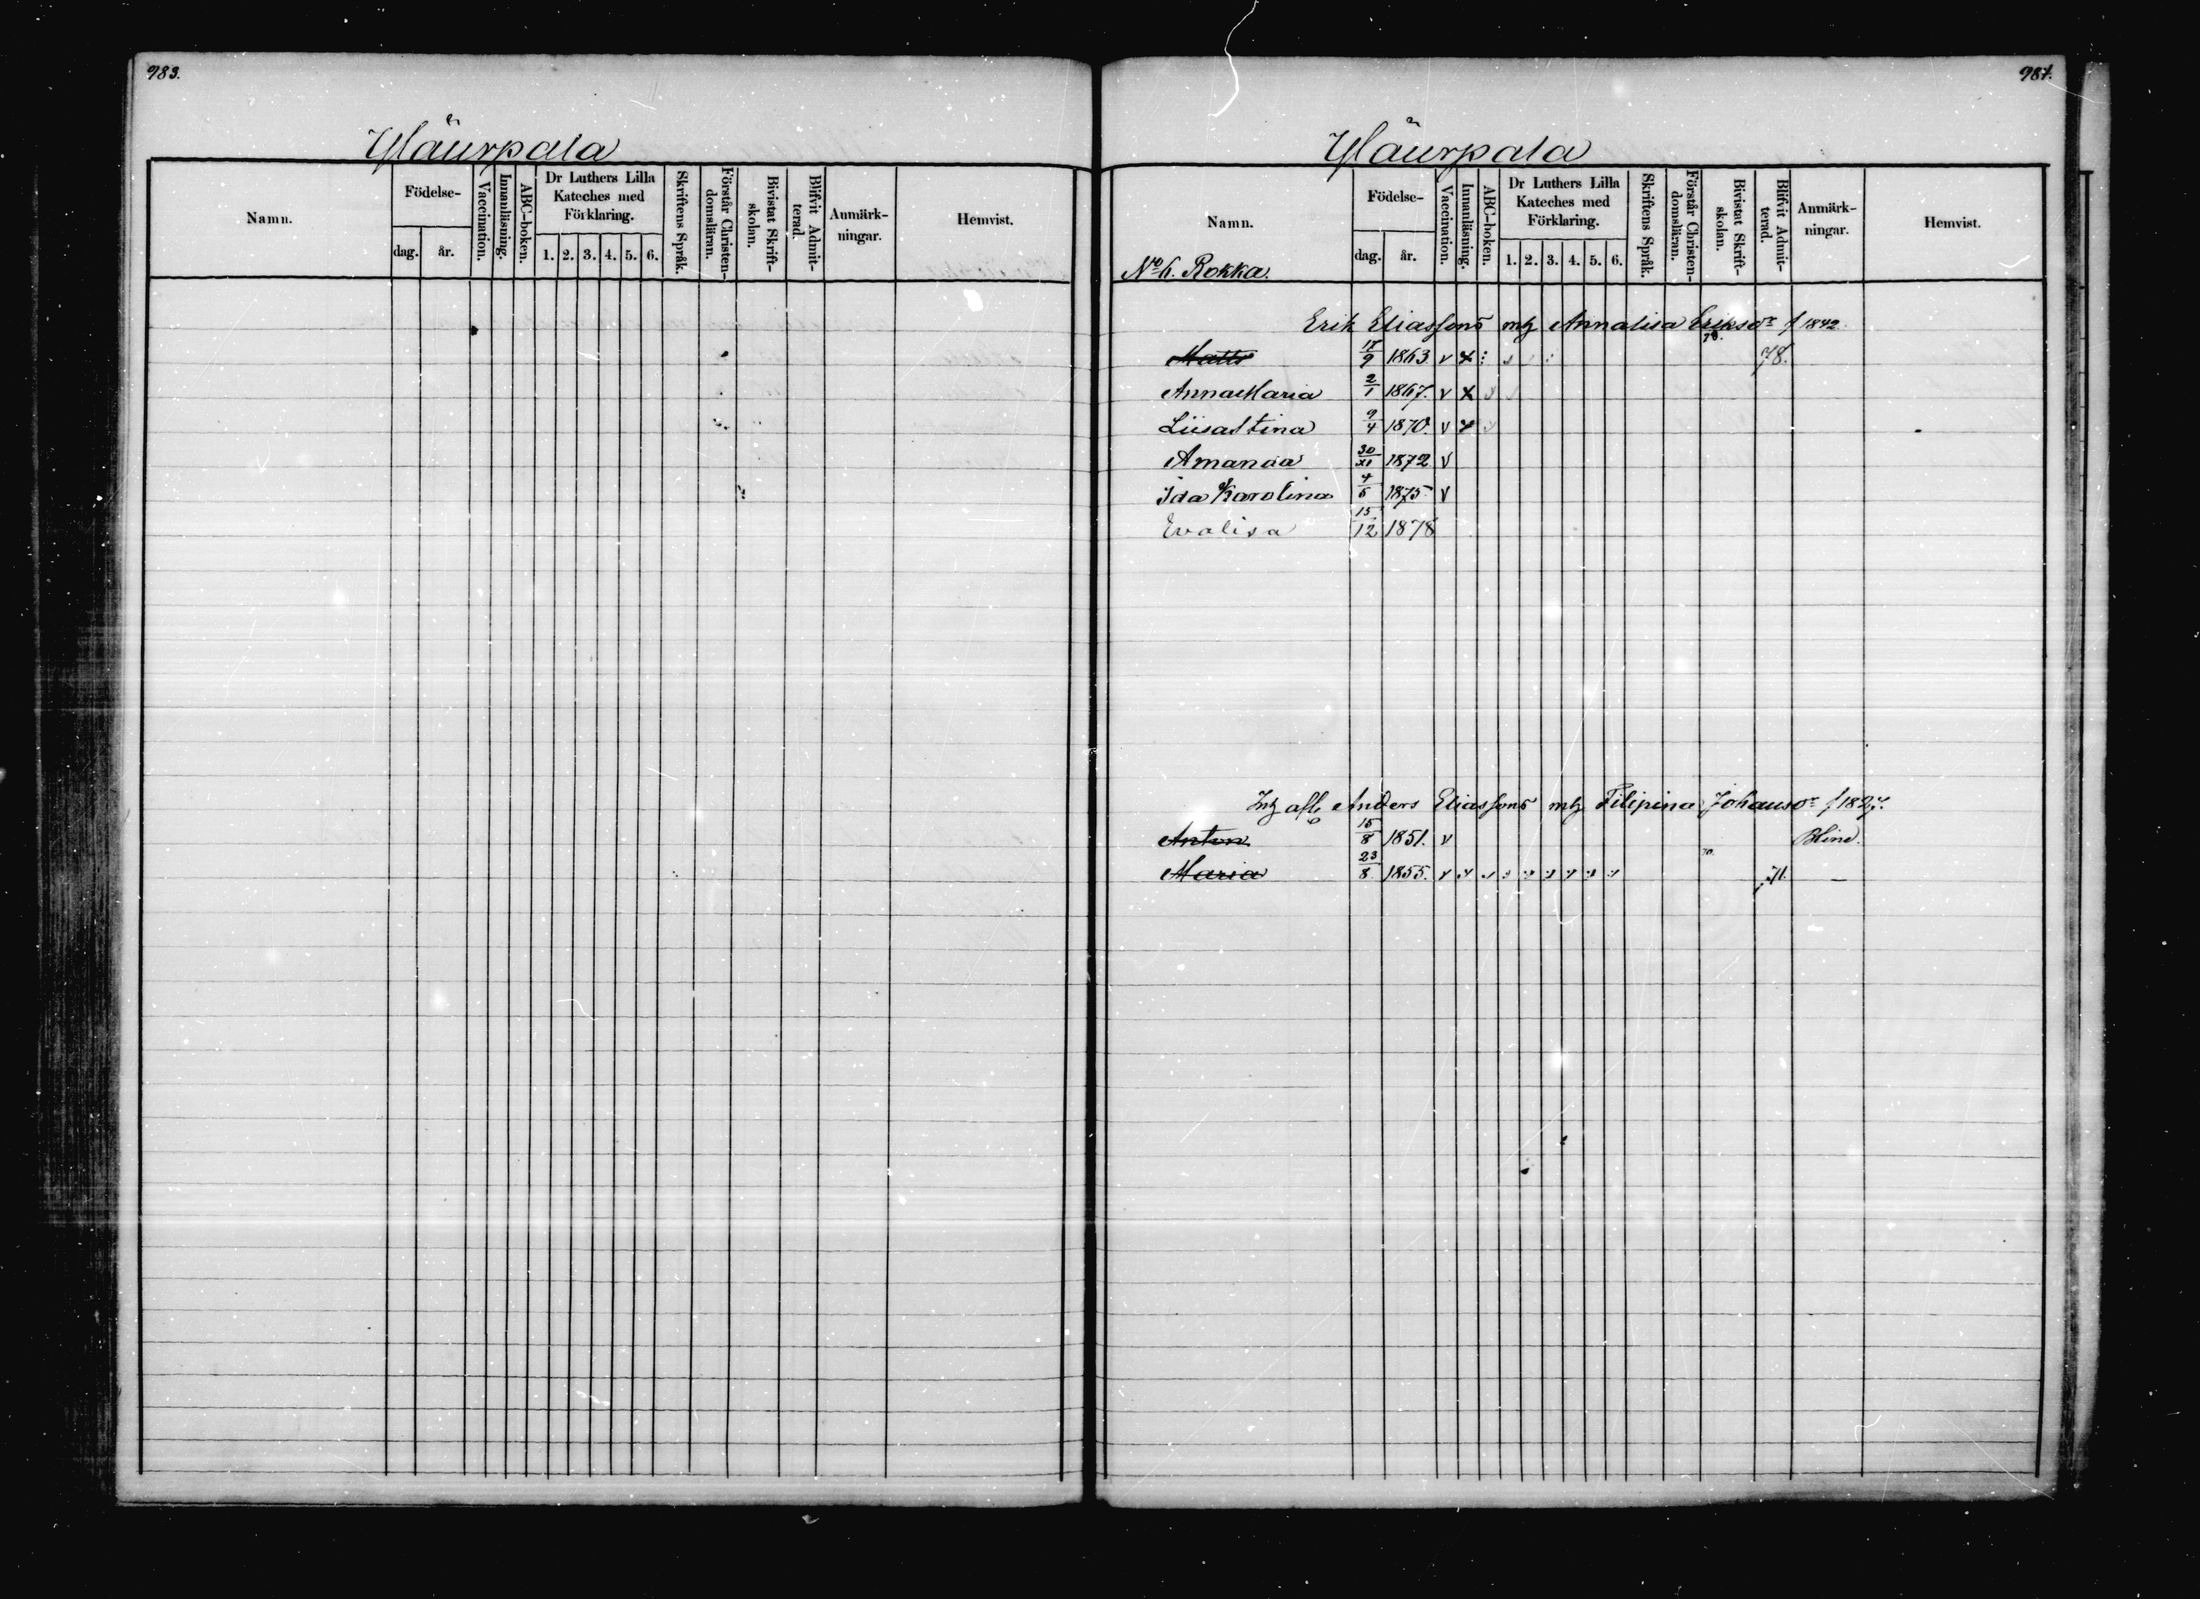 983.
Yläurpala
Namn.
Födelse-
dag.
år.
Vaccination.
Innanläsning.
ABC-boken.
Dr Luthers Lilla
Kateches med
Förklaring.
1. 2. 3. 4. 5. 6.
Skriftens Språk.
Förstår Christen-
domsläran.
Bivistat Skrift-
skolan.
Blifvit Admit-
terad.
Anmärk-
ningar.
Hemvist.
987.
Yläurpala
Namn.
Födelse-
dag.
år.
Vaccination.
Innanläsning.
ABC-boken.
Dr Luthers Lilla
Kateches med
Förklaring.
1. 2. 3. 4. 5. 6.
Skriftens Språk.
Förstår Christen-
domsläran.
Bivistat Skrift-
skolan.
Blifvit Admit-
terad.
Anmärk-
ningar.
Hemvist.
No 6. Rokka.
Erik Eliassons Annalisa Eriksdr f 1842
Matts 17/9 1863 v x 78.
AnnaMaria 2/1 1867. v x
LiisaStina 9/4 1870. v x
Amanda 30/XI 1872 v
Ida Karolina 4/5 1875 v
Evalisa 15/12 1878
Anders Eliassons Filipina Johansdr f 1827.
Anton 15/8 1851. v Blind.
70.
Maria 23/8 1855. v 71. —